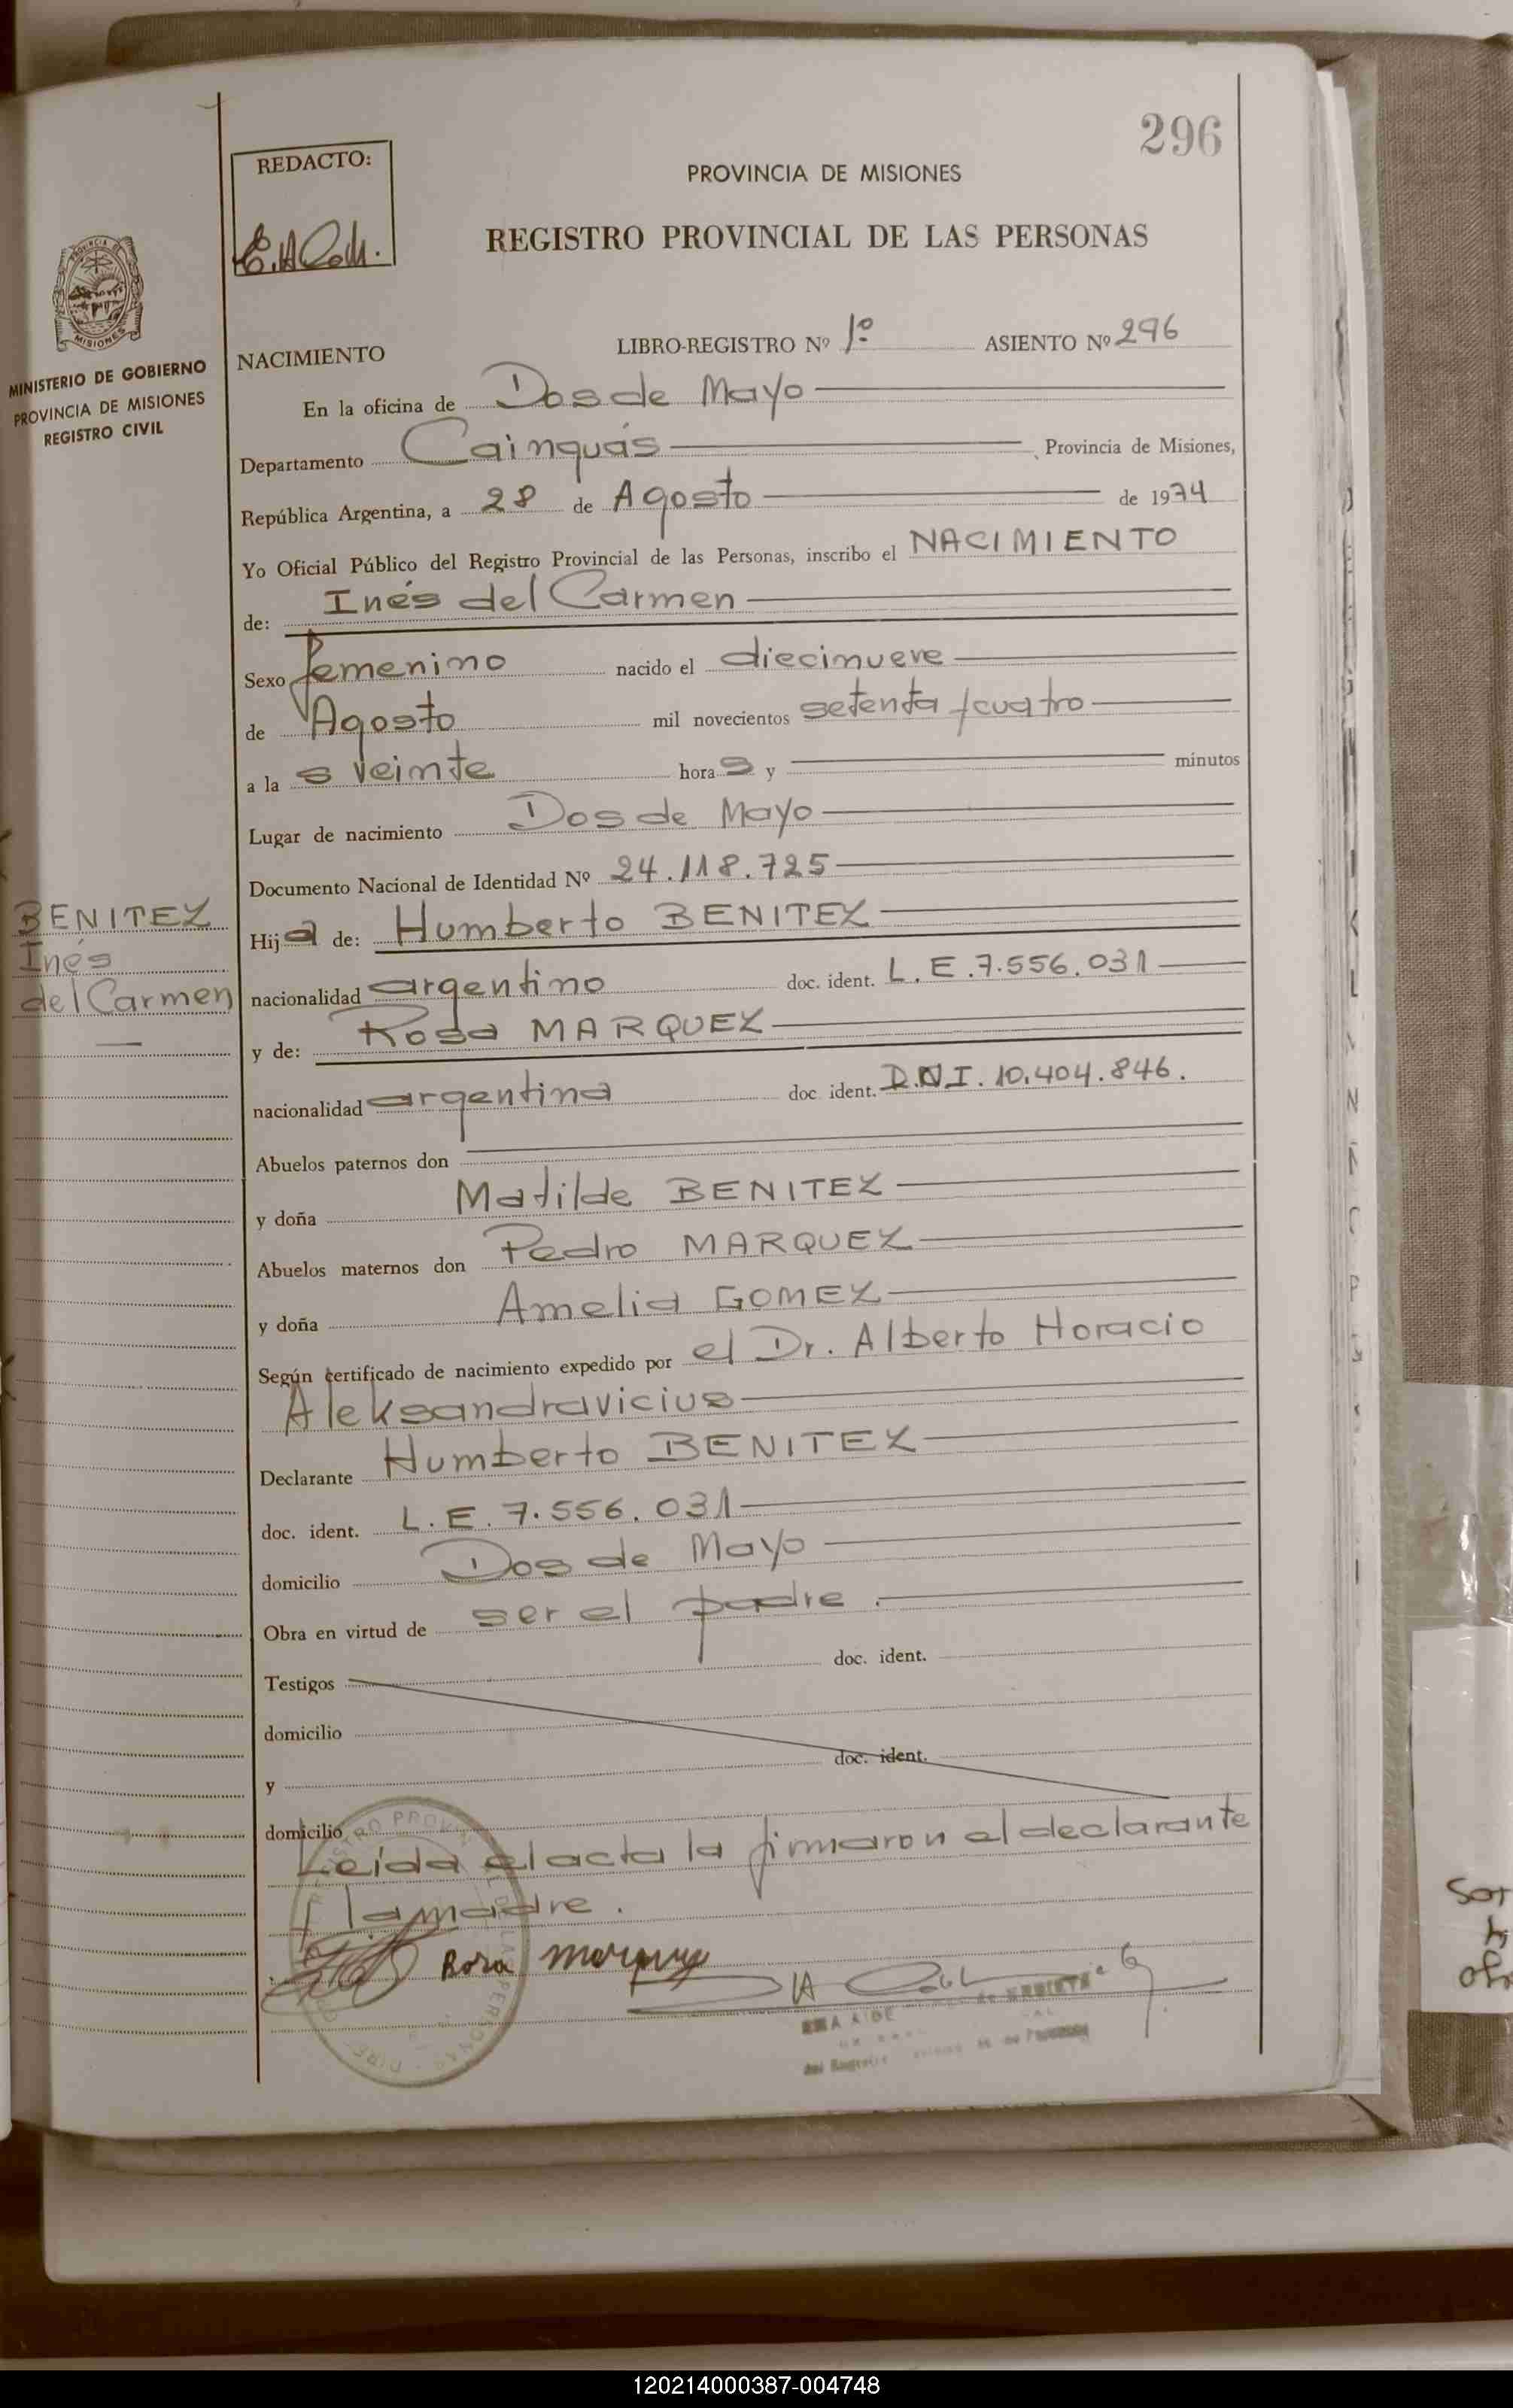 296
REDACTO:
PROVINCIA DE MISIONES
REGISTRO PROVINCIAL DE LAS PERSONAS
MISIONES
MINISTERIO DE GOBIERNO
PROVINCIA DE MISIONES
REGISTRO CIVIL
NACIMIENTO LIBRO-REGISTRO Nº 1º ASIENTO Nº 296
En la oficina de Dos de Mayo
Departamento Cainguás, Provincia de Misiones,
República Argentina, a 28 de Agosto de 1974
Yo Oficial Público del Registro Provincial de las Personas, inscribo el NACIMIENTO
de: Inés del Carmen
Sexo femenino nacido el diecinueve
de Agosto mil novecientos setenta y cuatro
a la s veinte hora s y minutos
Lugar de nacimiento Dos de Mayo
Documento Nacional de Identidad Nº 24.118.725
BENITEZ
Inés
del Carmen
Hij a de: Humberto BENITEZ
nacionalidad argentino doc. ident. L.E.7.556.031
y de: Rosa MARQUEZ
nacionalidad argentina doc ident. D.N.I. 10.404.846.
Abuelos paternos don
y doña Matilde BENITEZ
Abuelos maternos don Pedro MARQUEZ
y doña Amelia GOMEZ
Según certificado de nacimiento expedido por el Dr. Alberto Horacio
Aleksandravicius
Declarante Humberto BENITEZ
doc. ident. L.E. 7.556.031
domicilio Dos de Mayo
Obra en virtud de ser el padre.
Testigos doc. ident.
domicilio
y doc. ident.
domicilio
Leida el acta la firmaron el declarante
y la madre.
Rosa marquez
120214000387-004748